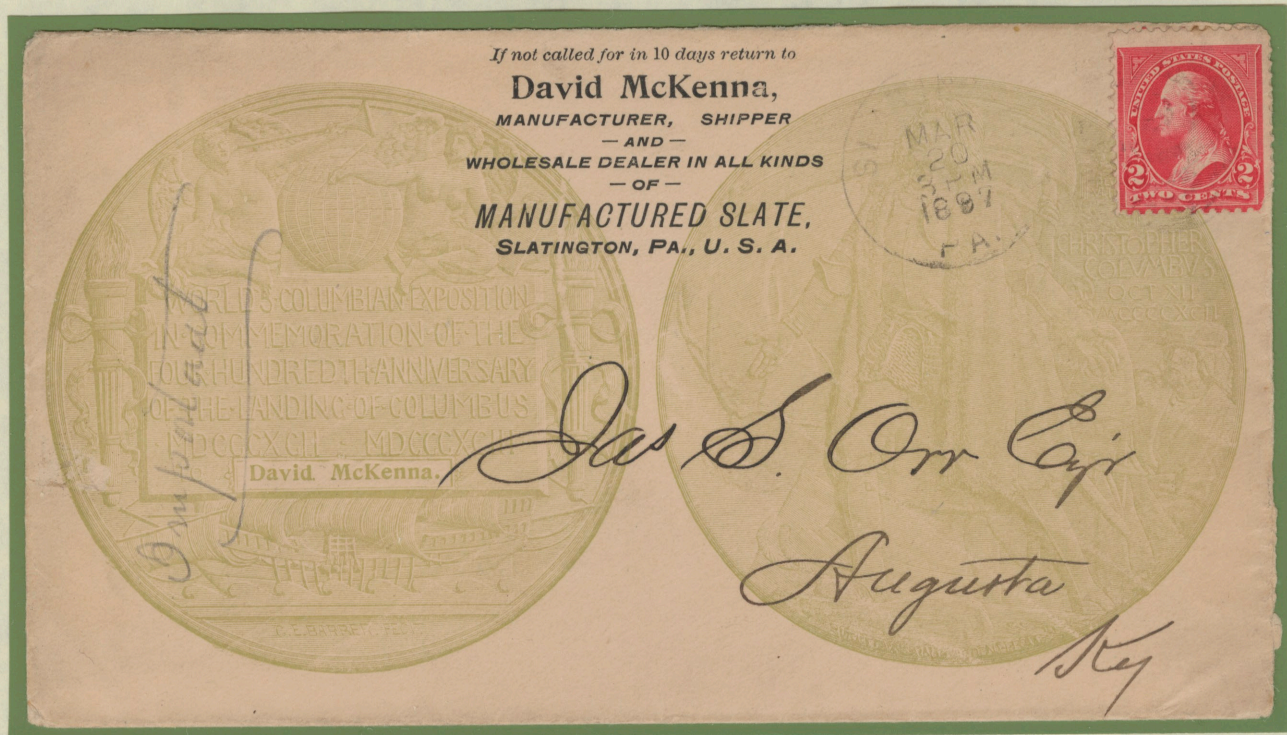 If not called for in 10 days return to
David McKenna,
MANUFACTURER, SHIPPER
— AND —
WHOLESALE DEALER IN ALL KINDS
— OF —
MANUFACTURED SLATE,
SLATINGTON, PA., U. S. A.
UNITED STATES POSTAGE
2 2
TWO CENTS
MAR
20
PM
1897
PA.
WORLD'S·COLUMBIAN·EXPOSITION
IN·COMMEMORATION·OF·THE
FOUR·HUNDREDTH·ANNIVERSARY
OF·THE·LANDING·OF·COLUMBUS
MDCCCXCII · MDCCCXCIII
David McKenna.
C. E. BARBER. FECIT
CHRISTOPHER
COLVMBVS
OCT·XII
MCCCCXCII
Important
Jas S. Orr Esqr
Augusta
Ky